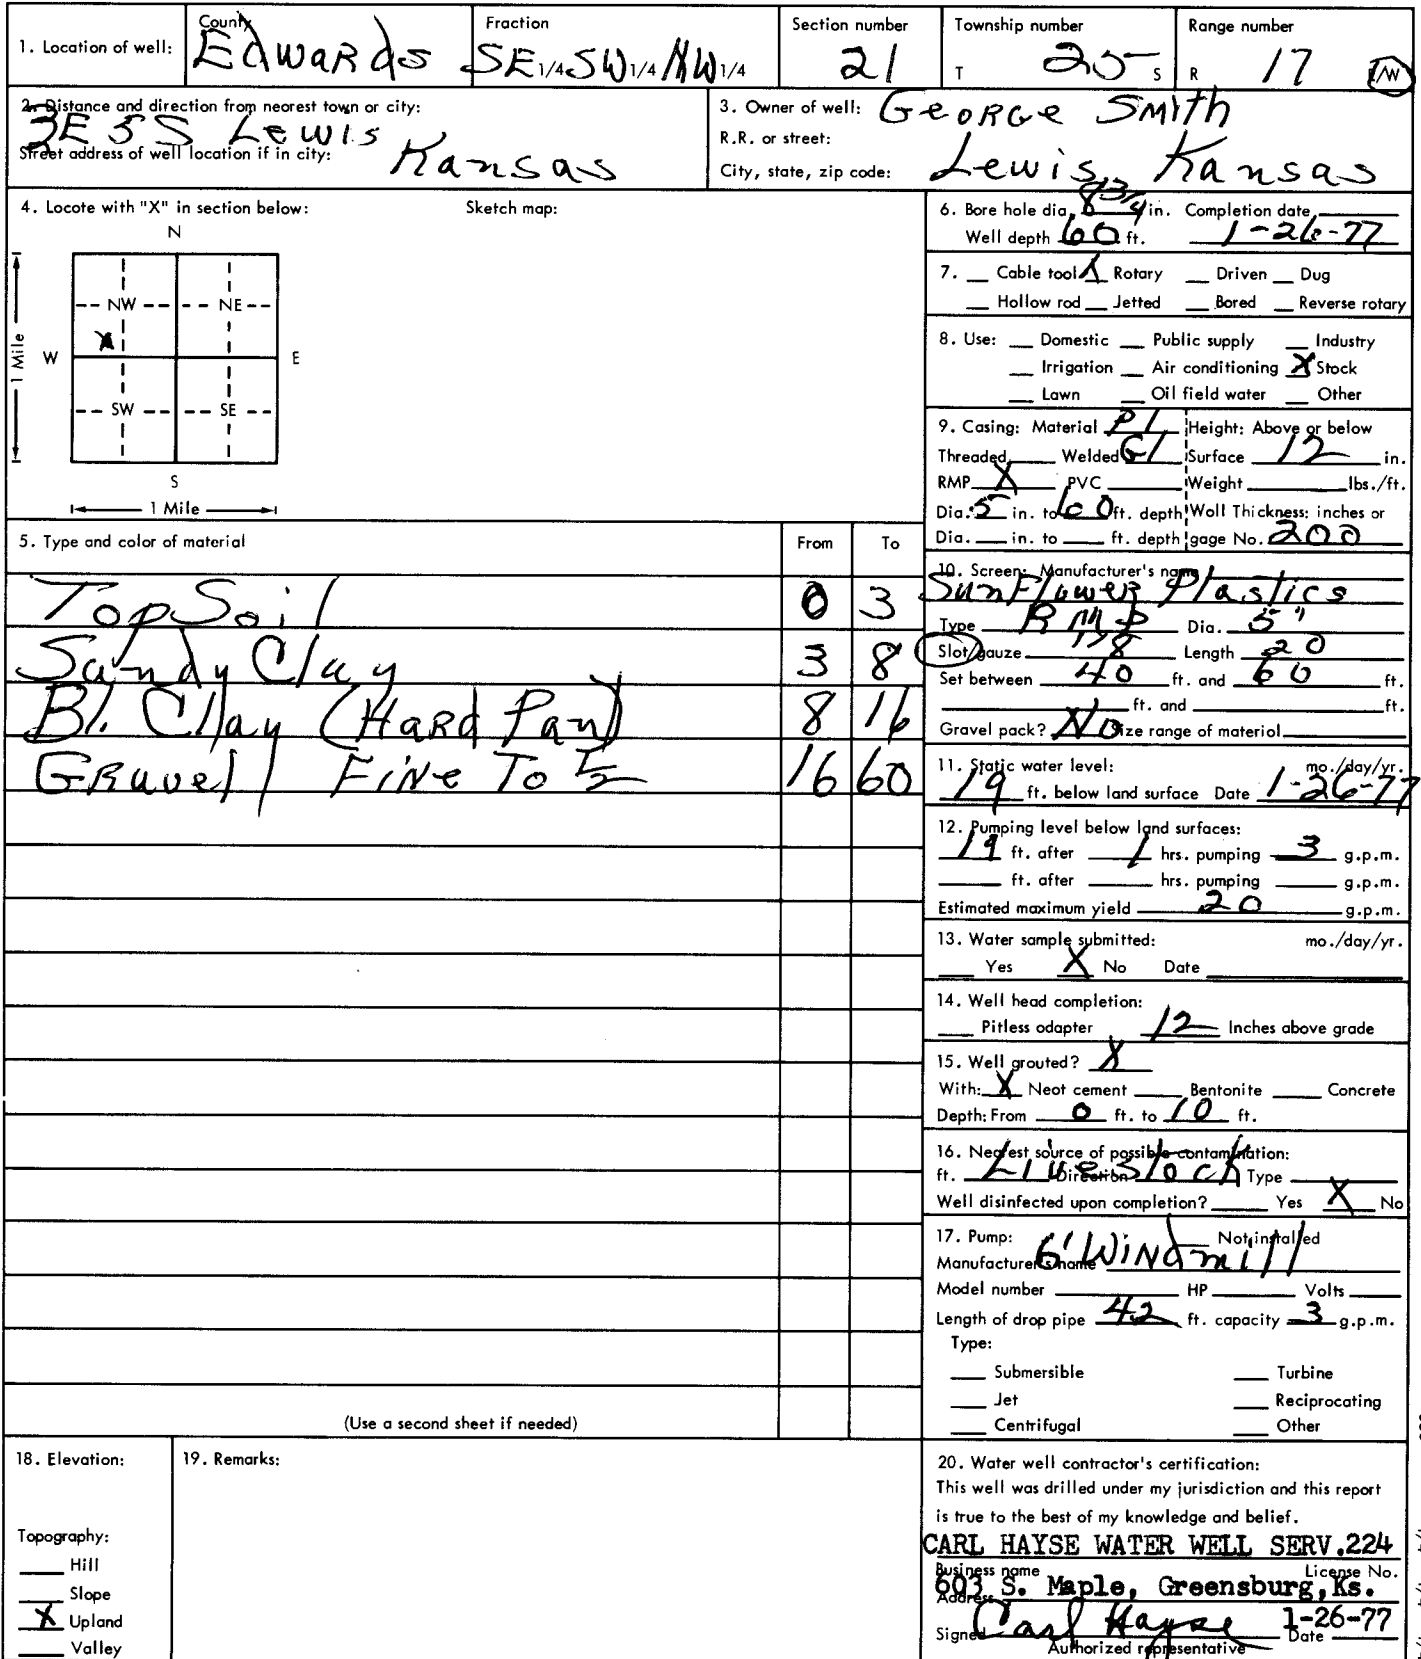 1. Location of well: County Edwards Fraction SE 1/4 SW 1/4 NW 1/4 Section number 21 Township number T 25 S Range number R 17 E/W
2. Distance and direction from nearest town or city: 3E 5S Lewis
Street address of well location if in city: Kansas
3. Owner of well: George Smith
R.R. or street:
City, state, zip code: Lewis, Kansas
4. Locate with "X" in section below: Sketch map:
N
NW NE
X
W E
1 Mile
SW SE
S
1 Mile
5. Type and color of material From To
Top Soil 0 3
Sandy Clay 3 8
Bl. Clay (Hard Pan) 8 16
Gravel Fine To 1/2 16 60
(Use a second sheet if needed)
6. Bore hole dia. 8 3/4 in. Completion date
Well depth 60 ft. 1-26-77
7. Cable tool X Rotary Driven Dug
Hollow rod Jetted Bored Reverse rotary
8. Use: Domestic Public supply Industry
Irrigation Air conditioning X Stock
Lawn Oil field water Other
9. Casing: Material Pl Height: Above or below
Threaded Welded Gl Surface 12 in.
RMP X PVC Weight lbs./ft.
Dia. 5 in. to 60 ft. depth Wall Thickness: inches or
Dia. in. to ft. depth gage No. 200
10. Screen: Manufacturer's name
SunFlower Plastics
Type RMP Dia. 5"
Slot/gauze Length 20
Set between 40 ft. and 60 ft.
ft. and ft.
Gravel pack? No Size range of material
11. Static water level: mo./day/yr.
19 ft. below land surface Date 1-26-77
12. Pumping level below land surfaces:
19 ft. after 1 hrs. pumping 3 g.p.m.
ft. after hrs. pumping g.p.m.
Estimated maximum yield 20 g.p.m.
13. Water sample submitted: mo./day/yr.
Yes X No Date
14. Well head completion:
Pitless adapter 12 Inches above grade
15. Well grouted? X
With: X Neat cement Bentonite Concrete
Depth: From 0 ft. to 10 ft.
16. Nearest source of possible contamination:
ft. Livestock Direction Type
Well disinfected upon completion? Yes X No
17. Pump: Not installed
Manufacturer's name 6' Windmill
Model number HP Volts
Length of drop pipe 42 ft. capacity 3 g.p.m.
Type:
Submersible Turbine
Jet Reciprocating
Centrifugal Other
18. Elevation:
Topography:
Hill
Slope
X Upland
Valley
19. Remarks:
20. Water well contractor's certification:
This well was drilled under my jurisdiction and this report
is true to the best of my knowledge and belief.
CARL HAYSE WATER WELL SERV. 224
Business name License No.
603 S. Maple, Greensburg, Ks.
Address
Signed Carl Hayse 1-26-77 Date
Authorized representative